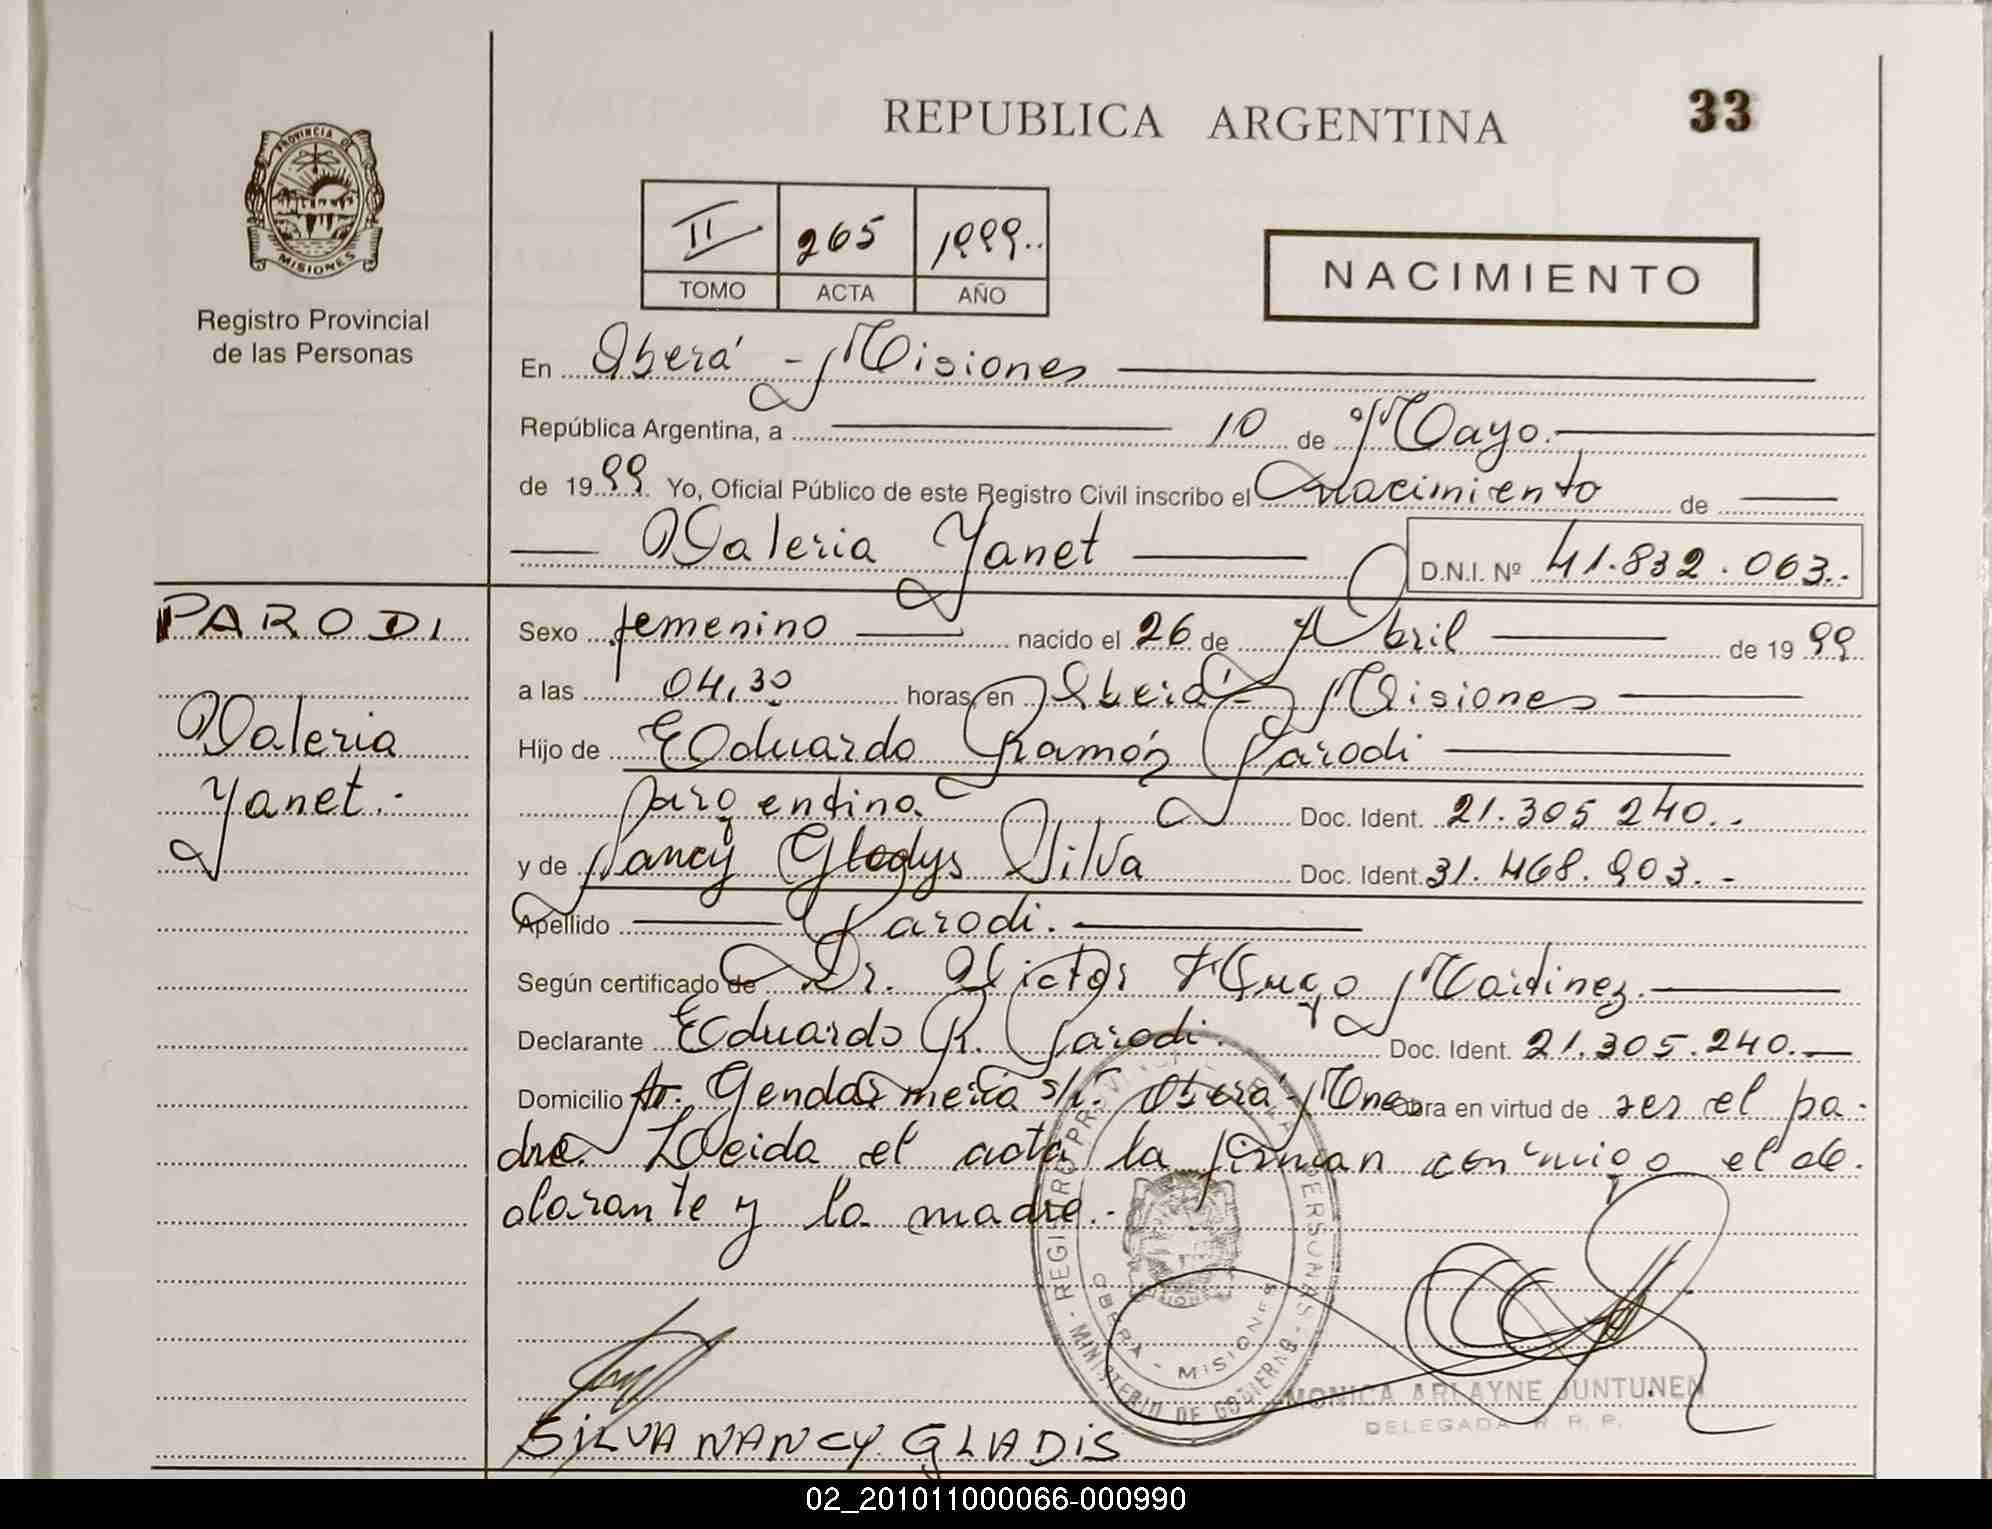 REPUBLICA ARGENTINA
33
PROVINCIA DE MISIONES
Registro Provincial
de las Personas
II 265 1999..
TOMO ACTA AÑO
NACIMIENTO
En Oberá - Misiones
República Argentina, a 10 de Mayo.
de 1999. Yo, Oficial Público de este Registro Civil inscribo el Nacimiento de
Valeria Yanet D.N.I. Nº 41.832.063..
PARODI
Valeria
Yanet.-
Sexo femenino nacido el 26 de Abril de 1999
a las 04,30 horas, en Oberá - Misiones
Hijo de Eduardo Ramón Parodi
argentina Doc. Ident. 21.305 240..
y de Nancy Gladys Silva Doc. Ident. 31.468.903.-
Apellido Parodi.
Según certificado de Dr. Victor Hugo Martinez.
Declarante Eduardo R. Parodi. Doc. Ident. 21.305.240.
Domicilio Av. Gendarmería s/n. Oberá Mnes Obra en virtud de ser el pa-
dre. Leida el acta la firman conmigo el de-
clarante y la madre.-
REGISTRO PROVINCIAL DE LAS PERSONAS - MINISTERIO DE GOBIERNO -
OBERA - MISIONES
MONICA ARLAYNE JUNTUNEN
DELEGADA R. R. P.
SILVA NANCY GLADIS
02_201011000066-000990